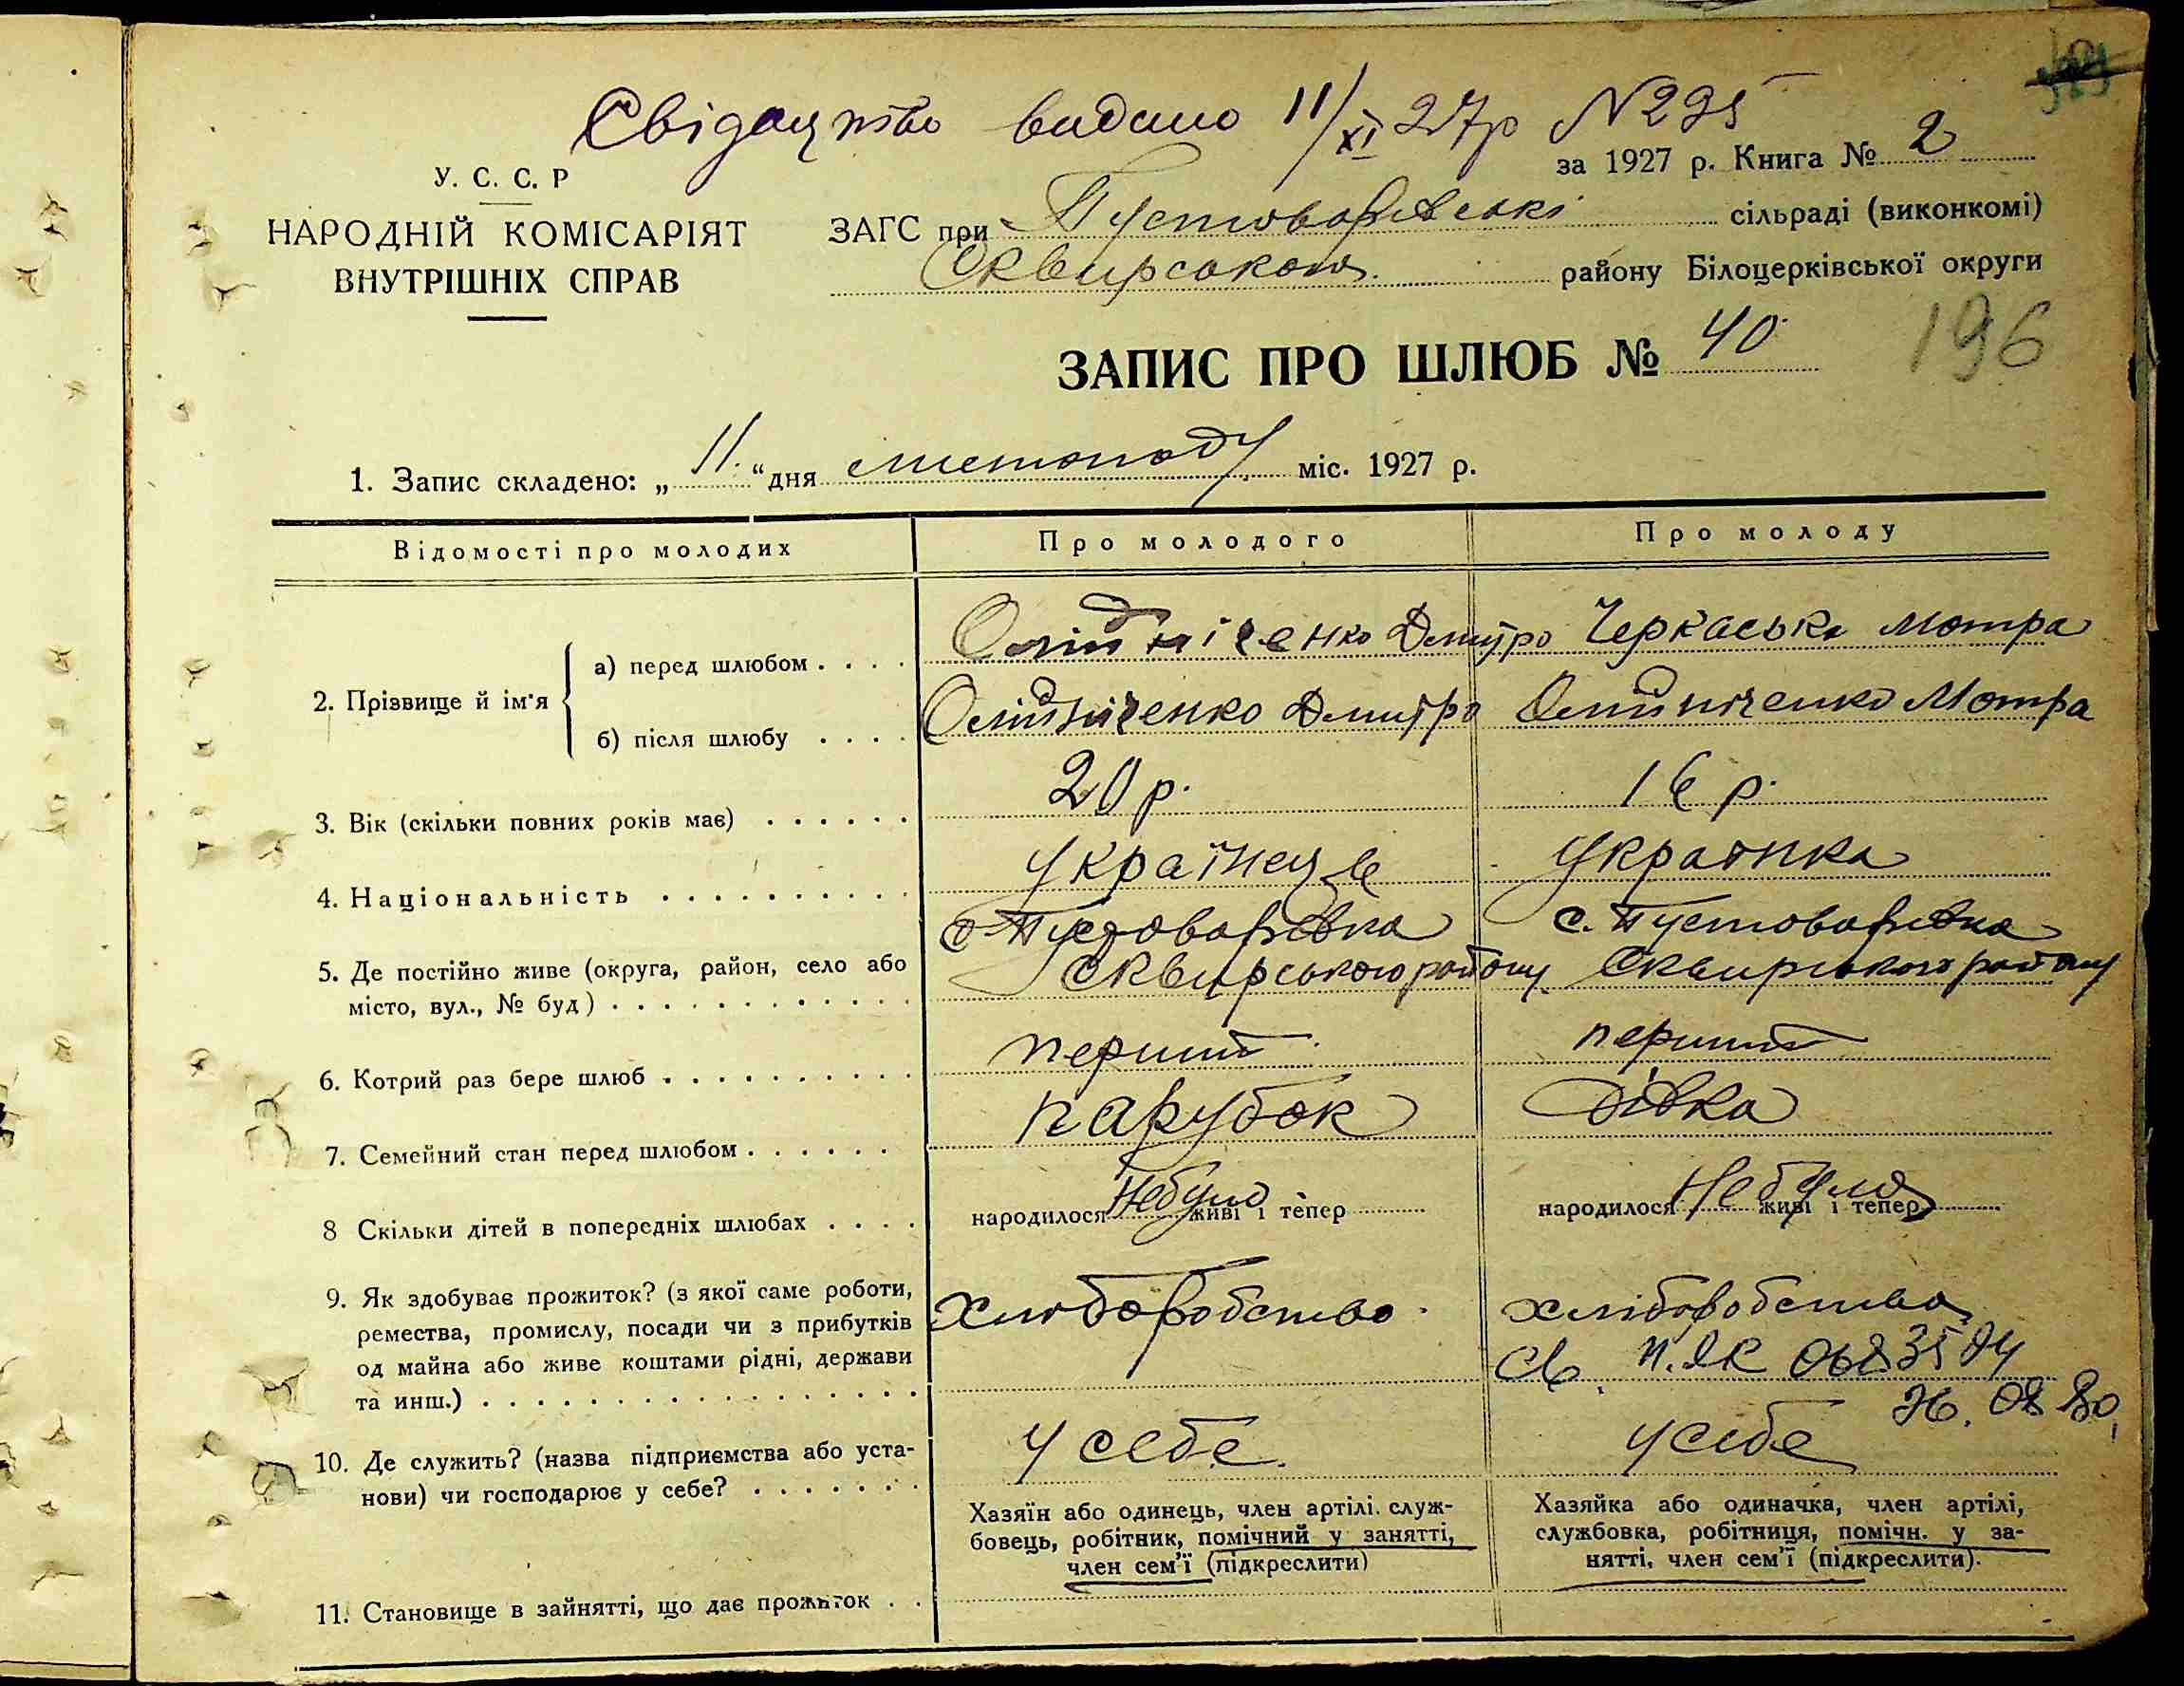 Свідоцтво видано 11/XI 27р N295
У. С. С. Р
НАРОДНІЙ КОМІСАРІЯТ
ВНУТРІШНІХ СПРАВ
за 1927 р. Книга № 2
ЗАГС при Пустоварівські сільраді (виконкомі)
Сквирського району Білоцерківської округи
ЗАПИС ПРО ШЛЮБ № 40
196
1. Запис складено: „ 11. “ дня листопаду міс. 1927 р.
Відомості про молодих Про молодого Про молоду
2. Прізвище й ім'я
а) перед шлюбом . . . . Олійніченко Дмитро Черкаська Мотра
б) після шлюбу . . . . Олійніченко Дмитро Олійніченко Мотра
3. Вік (скільки повних років має) . . . . . . 20 р. 16 р.
4. Національність . . . . . . . . . . Українець Украінка
5. Де постійно живе (округа, район, село або с. Пустоварівка с. Пустоварівка
місто, вул., № буд) . . . . . . . . . . . . Сквирського району Сквирського району
6. Котрий раз бере шлюб . . . . . . . . . . перший перший
7. Семейний стан перед шлюбом . . . . . . парубок дівка
8 Скільки дітей в попередніх шлюбах . . . . народилося Небуло живі і тепер народилося Небуло живі і тепер
9. Як здобуває прожиток? (з якої саме роботи, Хліборобство хліборобство
ремества, промислу, посади чи з прибутків
од майна або живе коштами рідні, держави
та инш.) . . . . . . . . . . . . . . . . .
10. Де служить? (назва підприємства або уста- у себе. у себе
нови) чи господарює у себе? . . . . . . .
Хазяїн або одинець, член артілі. служ- Хазяйка або одиначка, член артілі,
бовець, робітник, помічний у занятті, службовка, робітниця, помічн. у за-
член сем'ї (підкреслити) нятті, член сем'ї (підкреслити).
11. Становище в зайнятті, що дає прожиток . .